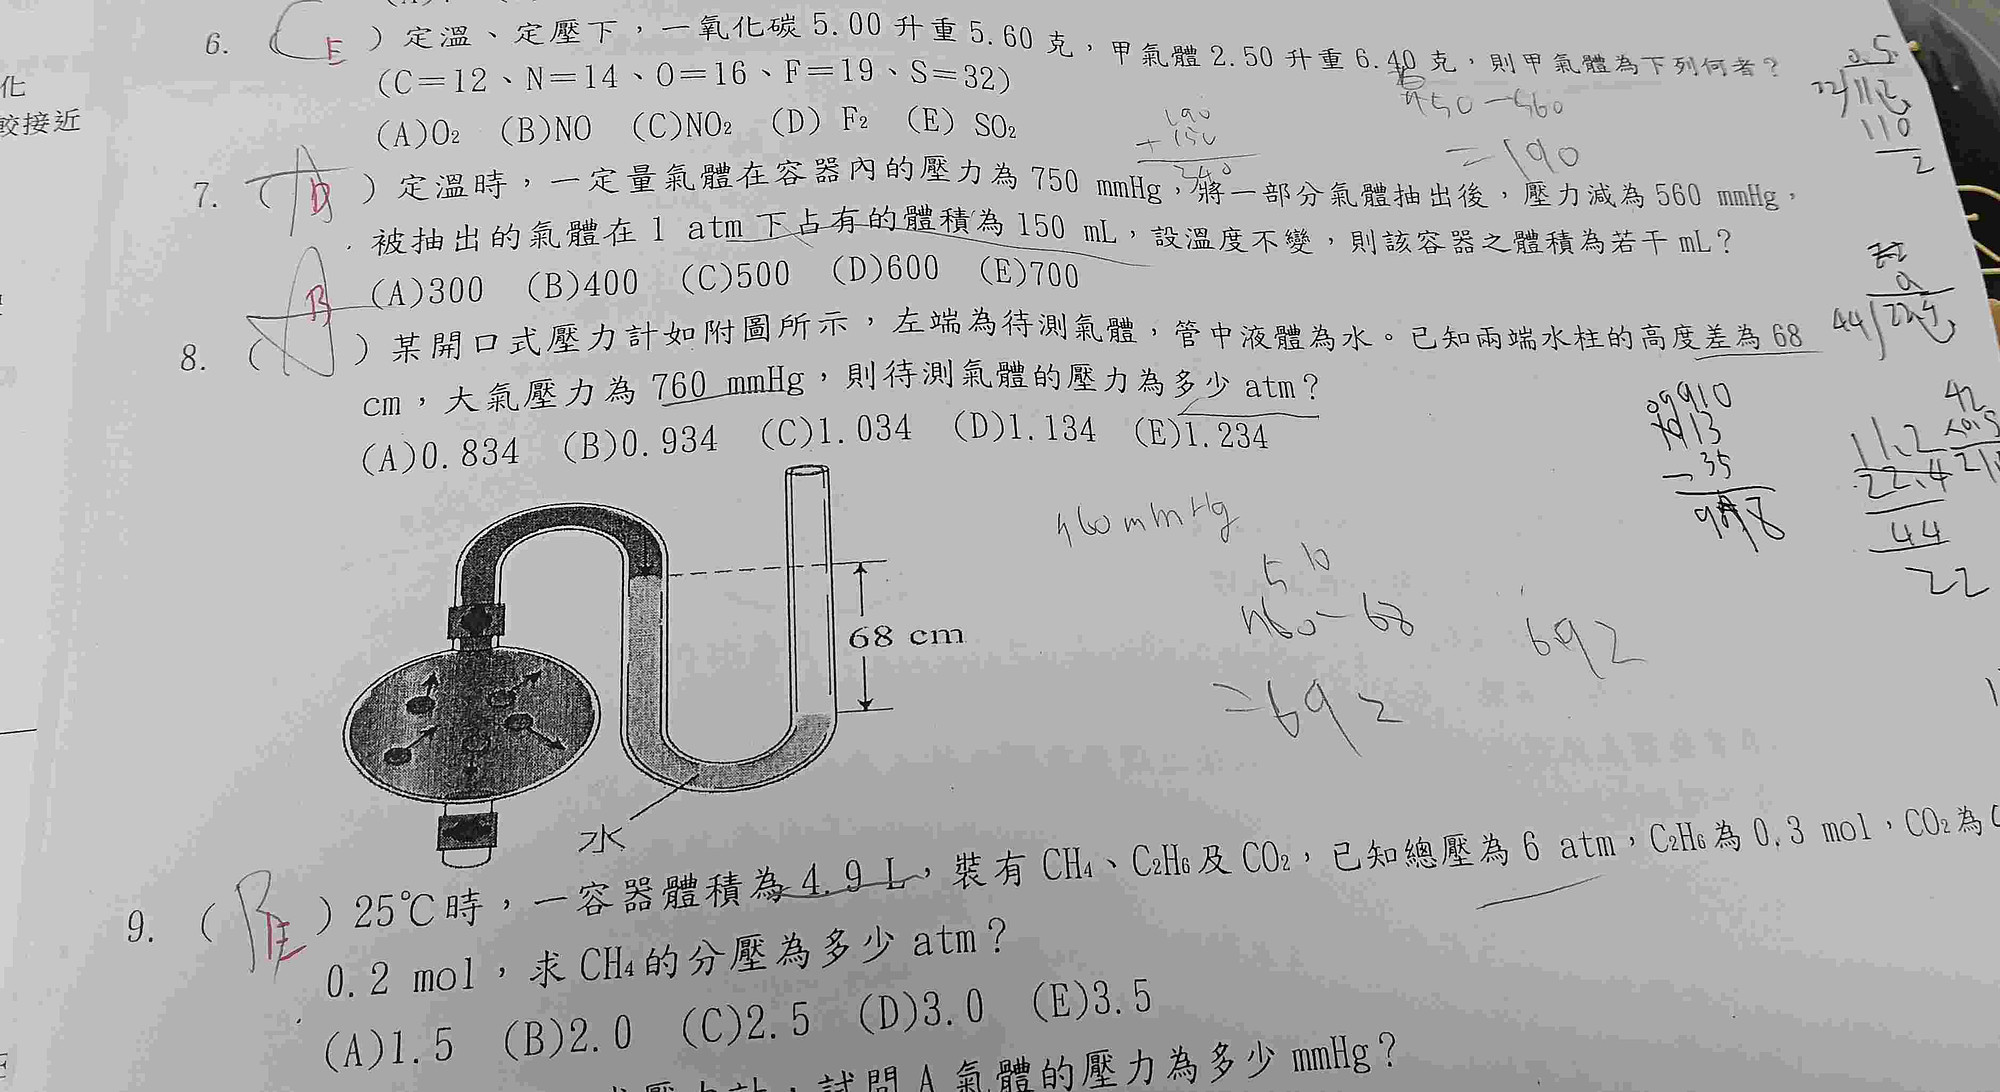 化
較接近
6. ( C E ) 定溫、定壓下，一氧化碳 5.00 升重 5.60 克，甲氣體 2.50 升重 6.40 克，則甲氣體為下列何者？
(C＝12、N＝14、O＝16、F＝19、S＝32)
(A)O₂ (B)NO (C)NO₂ (D) F₂ (E) SO₂
7. ( A D ) 定溫時，一定量氣體在容器內的壓力為 750 mmHg，將一部分氣體抽出後，壓力減為 560 mmHg，
被抽出的氣體在 1 atm 下占有的體積為 150 mL，設溫度不變，則該容器之體積為若干 mL？
(A)300 (B)400 (C)500 (D)600 (E)700
8. ( A B ) 某開口式壓力計如附圖所示，左端為待測氣體，管中液體為水。已知兩端水柱的高度差為 68
cm，大氣壓力為 760 mmHg，則待測氣體的壓力為多少 atm？
(A)0.834 (B)0.934 (C)1.034 (D)1.134 (E)1.234
68 cm
水
750－560
＝190
190
+ 150
240
0.5
22 11.2
110
2
9
44 22.4
0 9 9 10
1013
－35
978
11.2
22.4
44
22
760 mmHg
5 10
760－68
＝692
692
9. ( B E ) 25℃時，一容器體積為 4.9 L，裝有 CH₄、C₂H₆及 CO₂，已知總壓為 6 atm，C₂H₆為 0.3 mol，CO₂為
0.2 mol，求 CH₄的分壓為多少 atm？
(A)1.5 (B)2.0 (C)2.5 (D)3.0 (E)3.5
試問 A 氣體的壓力為多少 mmHg？